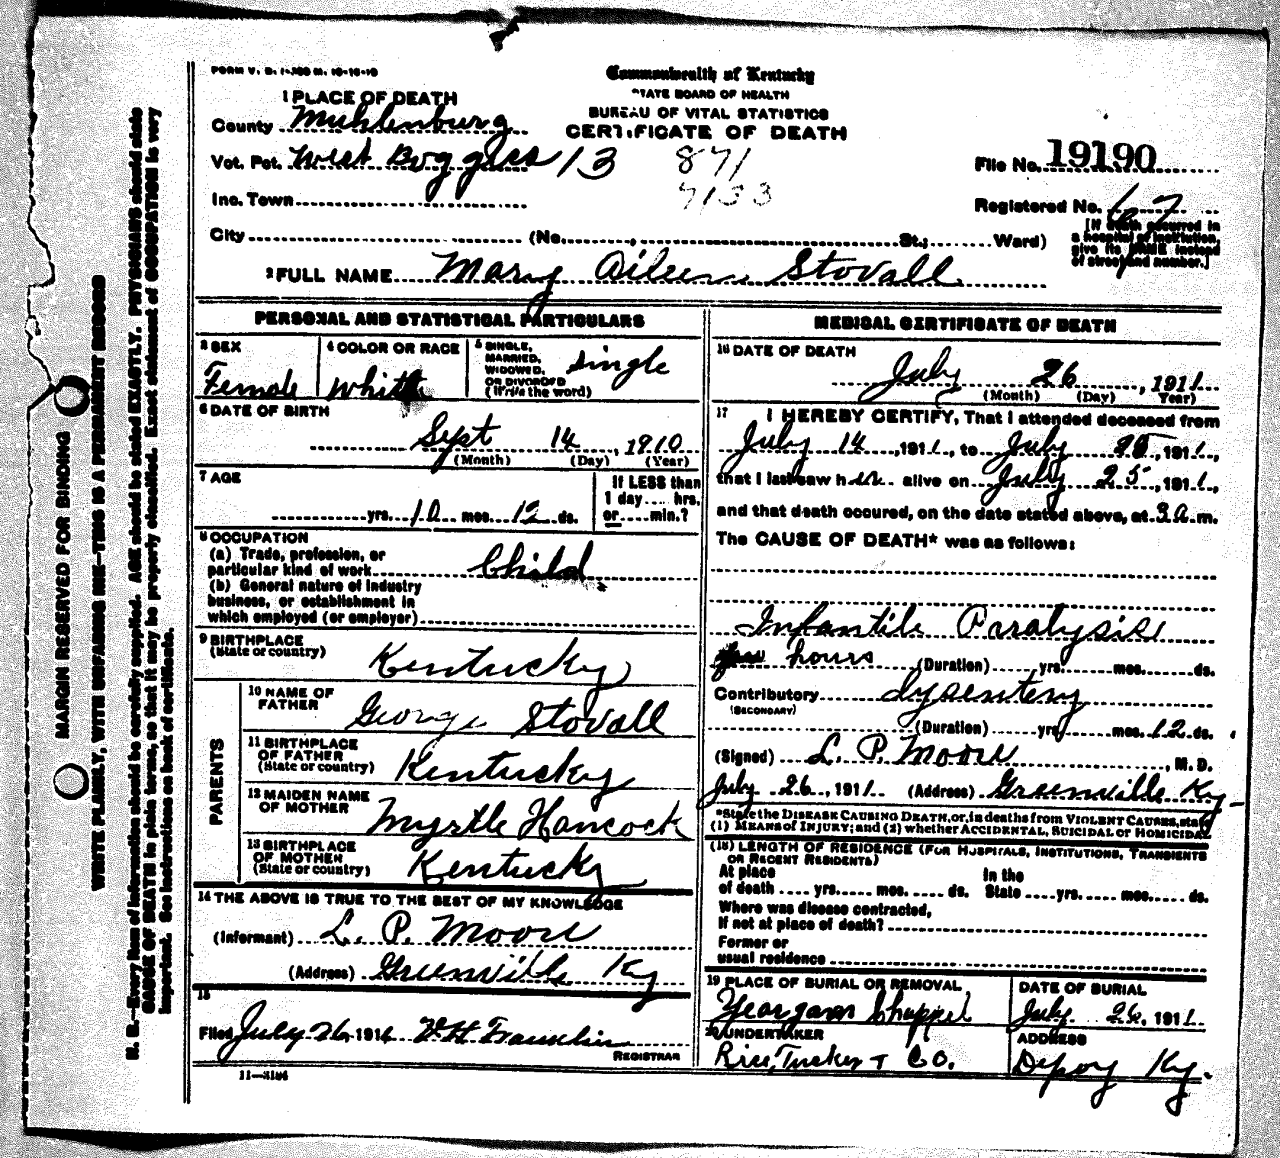 FORM V. S. 1-
Commonwealth of Kentucky
STATE BOARD OF HEALTH
BUREAU OF VITAL STATISTICS
CERTIFICATE OF DEATH
1 PLACE OF DEATH
County Muhlenburg
Vot. Pct. West Boggess 13
871
7133
File No. 19190
Inc. Town
Registered No. 67
City (No. , St.; Ward)
[If death occurred in
a hospital or institution,
give its NAME instead
of street and number.]
2 FULL NAME Mary Aileen Stovall
PERSONAL AND STATISTICAL PARTICULARS
3 SEX
Female
4 COLOR OR RACE
White
5 SINGLE,
MARRIED,
WIDOWED,
OR DIVORCED
(Write the word)
Single
6 DATE OF BIRTH
Sept 14, 1910
(Month) (Day) (Year)
7 AGE
yrs. 10 mos. 12 ds.
If LESS than
1 day.... hrs.
or.....min.?
8 OCCUPATION
(a) Trade, profession, or
particular kind of work Child
(b) General nature of industry
business, or establishment in
which employed (or employer)
9 BIRTHPLACE
(State or country)
Kentucky
PARENTS
10 NAME OF
FATHER
George Stovall
11 BIRTHPLACE
OF FATHER
(State or country)
Kentucky
12 MAIDEN NAME
OF MOTHER
Myrtle Hancock
13 BIRTHPLACE
OF MOTHER
(State or country)
Kentucky
14 THE ABOVE IS TRUE TO THE BEST OF MY KNOWLEDGE
(Informant) L. P. Moore
(Address) Greenville Ky
15
Filed July 26 191 V H Franklin
REGISTRAR
11—3184
MEDICAL CERTIFICATE OF DEATH
16 DATE OF DEATH
July 26, 1911
(Month) (Day) Year)
17 I HEREBY CERTIFY, That I attended deceased from
July 14, 1911, to July 25, 1911,
that I last saw her alive on July 25, 1911,
and that death occured, on the date stated above, at 3 a m.
The CAUSE OF DEATH* was as follows:
Infantile Paralysis
few hours (Duration) yrs. mos. ds.
Contributory dysentery
(SECONDARY)
(Duration) yrs. mos. 12 ds.
(Signed) L. P. Moore, M. D.
July 26, 1911. (Address) Greenville Ky
*State the DISEASE CAUSING DEATH, or, in deaths from VIOLENT CAUSES, state
(1) MEANS of INJURY; and (2) whether ACCIDENTAL, SUICIDAL or HOMICIDAL
(18) LENGTH OF RESIDENCE (FOR HOSPITALS, INSTITUTIONS, TRANSIENTS
OR RECENT RESIDENTS)
At place In the
of death .... yrs. mos. ds. State yrs. mos. ds.
Where was disease contracted,
If not at place of death?
Former or
usual residence
19 PLACE OF BURIAL OR REMOVAL
Yeargans Chappel
DATE OF BURIAL
July 26, 1911
20 UNDERTAKER
Rice, Tucker + Co.
ADDRESS
Depoy Ky.
MARGIN RESERVED FOR BINDING
WRITE PLAINLY, WITH UNFADING INK—THIS IS A PERMANENT RECORD
N. B.—Every item of information should be carefully supplied. AGE should be stated EXACTLY. PHYSICIANS should state
CAUSE OF DEATH in plain terms, so that it may be properly classified. Exact statement of OCCUPATION is very
important. See instructions on back of certificate.